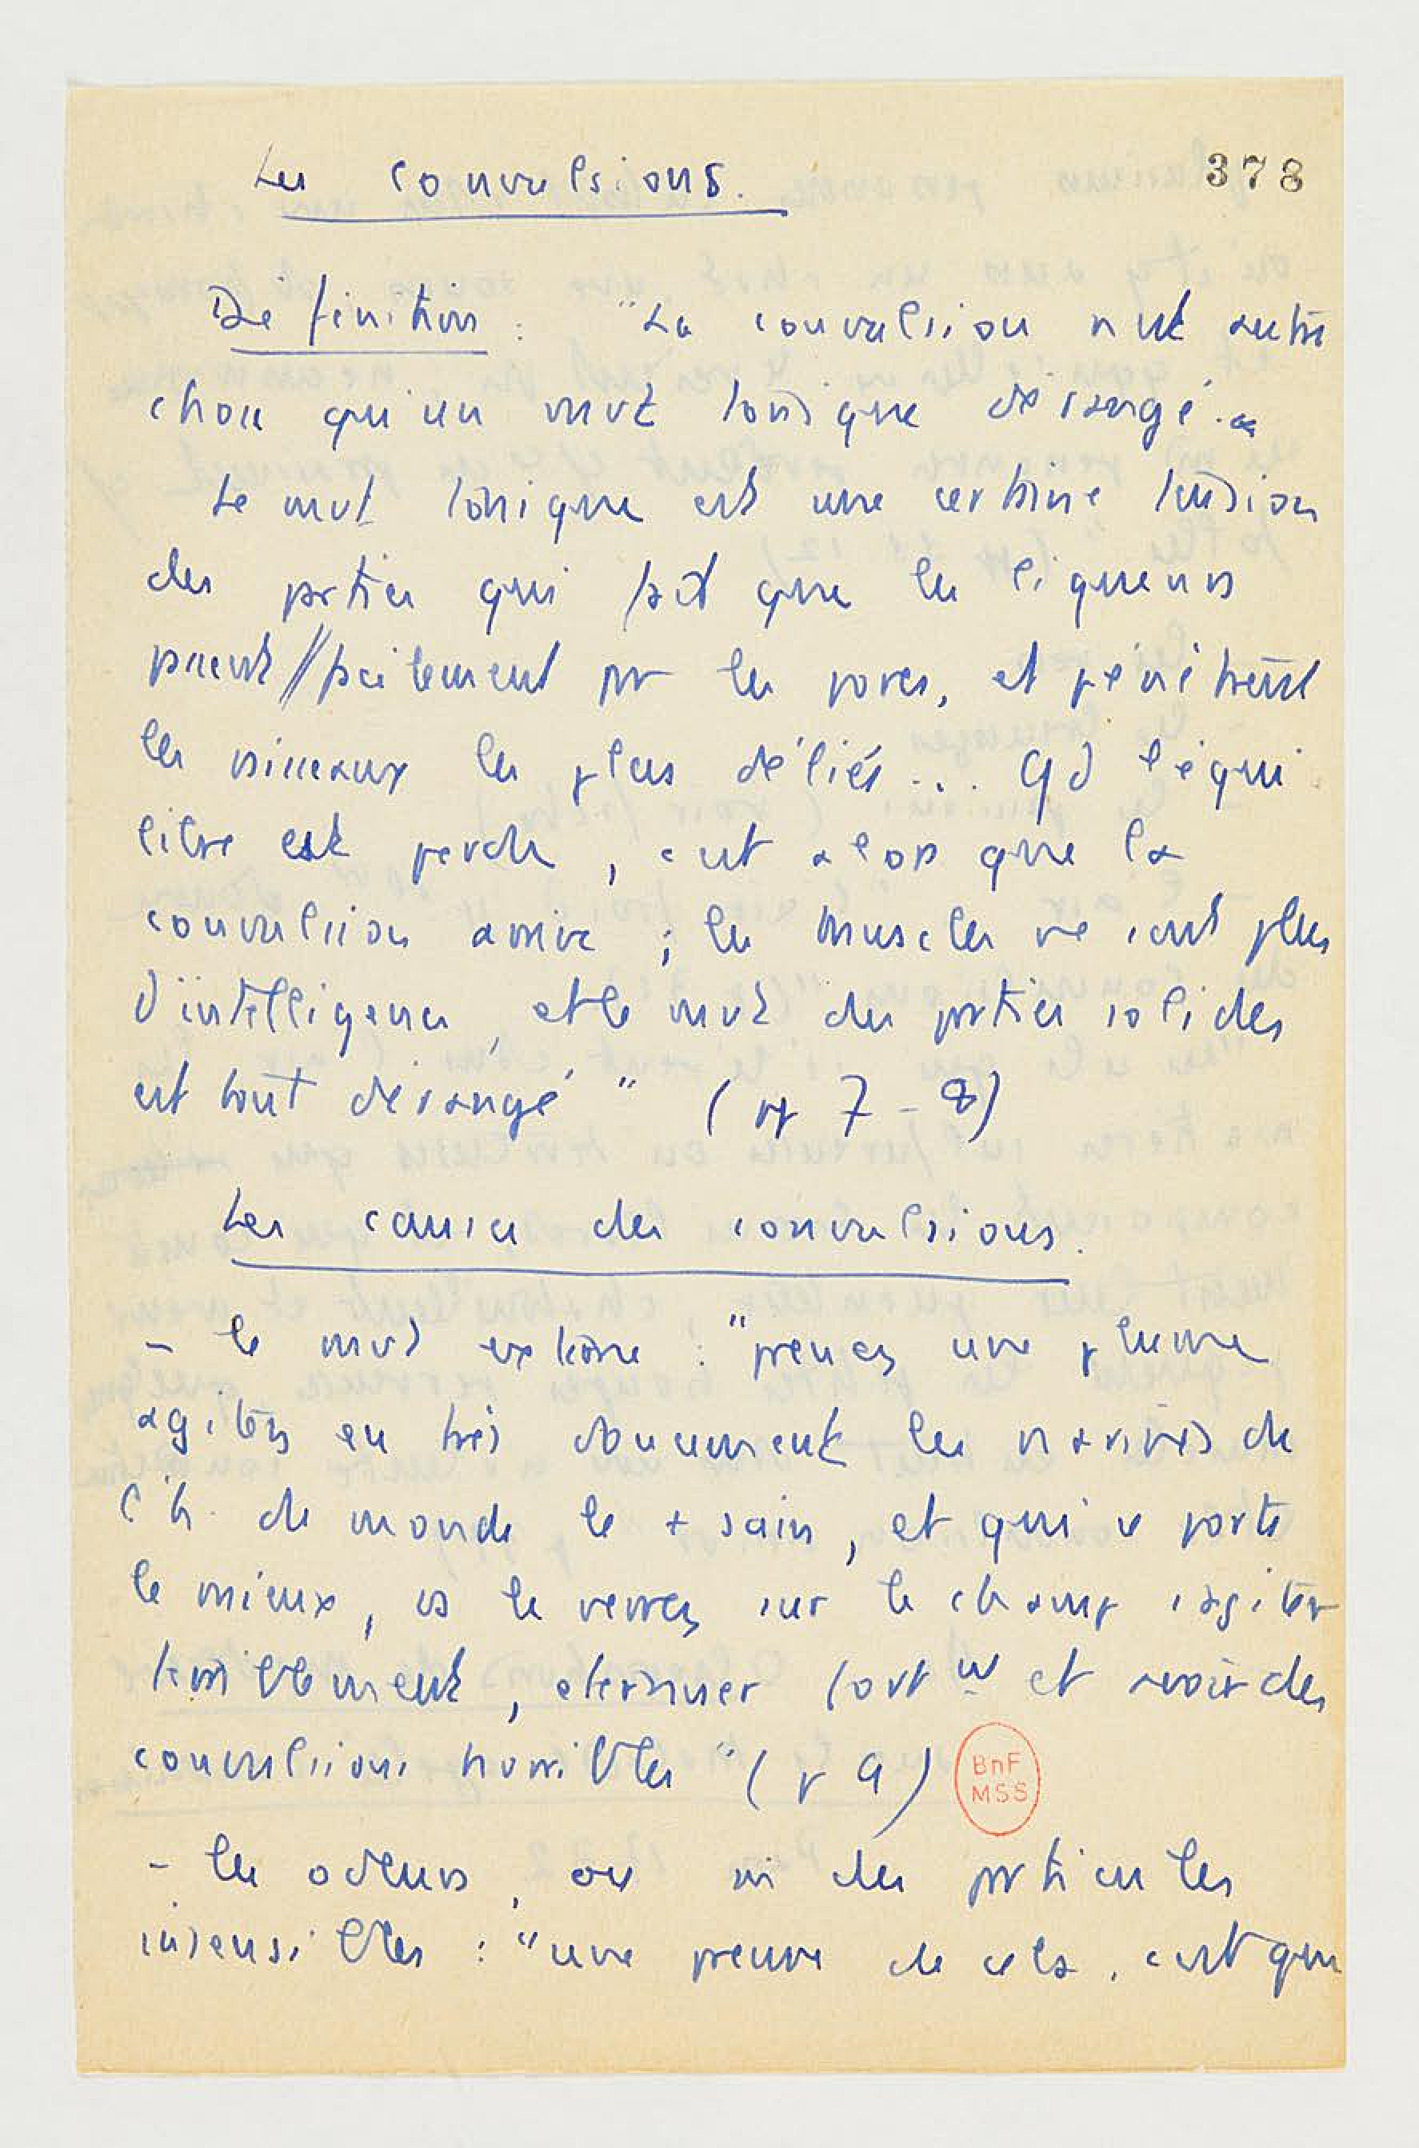 378
Les convulsions.
Définition : "La convulsion n'est autre
chose qu'un mvt tonique dérangé.
Le mvt tonique est une certaine tension
des parties qui fait que les liqueurs
passent // facilement par les pores, et pénètrent
les vaisseaux les plus déliés... Qd l'équi
libre est perdu, c'est alors que la
convulsion arrive ; les muscles ne sont plus
d'intelligence, et le mvt des parties solides
est tout dérangé" (pp 7-8)
Les causes des convulsions.
- le mvt externe : "prenez une plume
agitez en très doucement les narines de
l'h. de monde le + sain, et qui se porte
le mieux, vs le verrez sur le champ s'agiter
terriblement, éternuer fortmt et avoir des
convulsions horribles" (p 9)
BnF
MSS
- les odeurs, ou des particules
insensibles : "une preuve de cela, c'est que